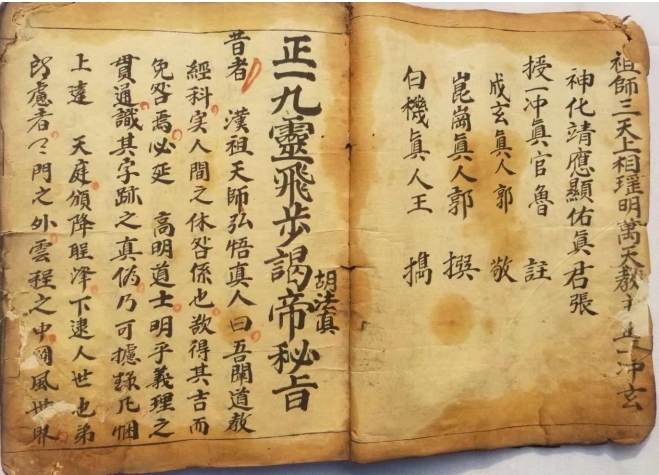 祖師三天上相瑶明萬天教主正一冲玄
神化靖應顯佑真君張
授一冲真官魯　註
成玄真人郭　敬
崑崗真人郭　撰
白機真人王　撝
正一九靈飛步謁帝秘旨
胡法真
昔者　漢祖天師弘悟真人曰吾聞道教
經科実人間之休咎係也欲得其吉而
免咎焉必延　高明道士明乎義理之
貫通識其字跡之真偽乃可據錄凡悃
上達　天庭頒降聖澤下逮人世也弟
所慮者天門之外雲程之中罔風世